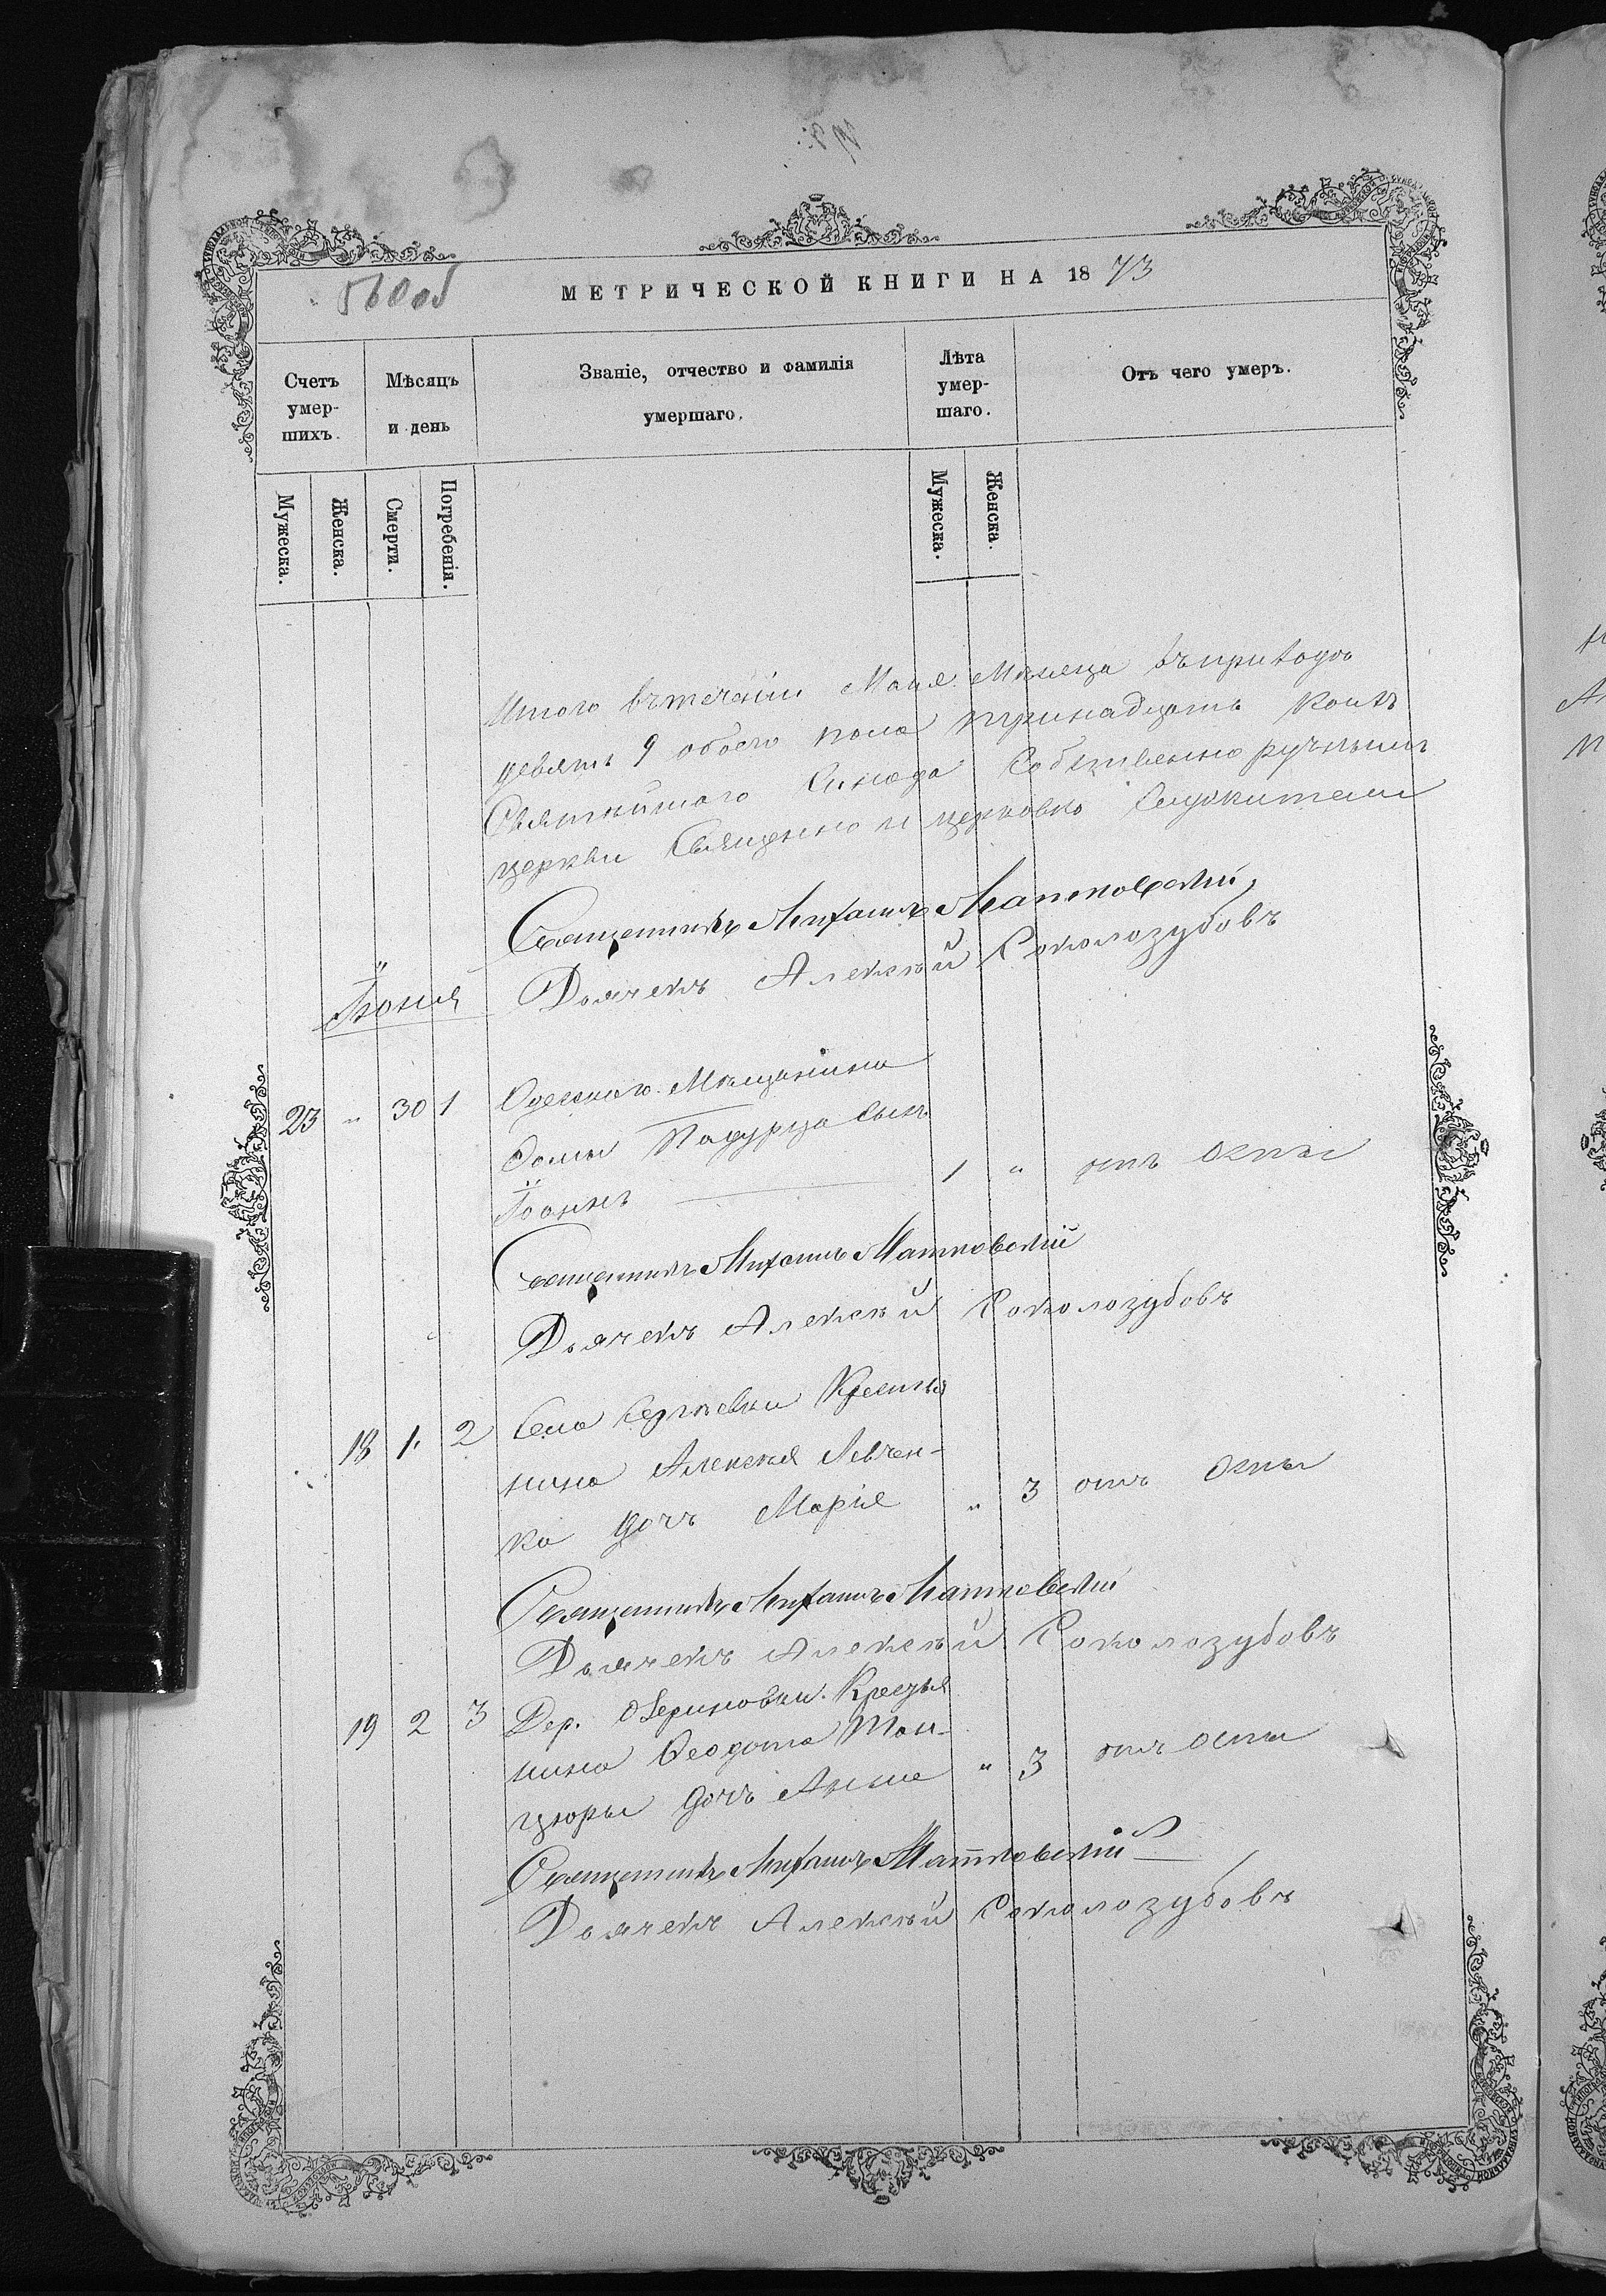 560об
МЕТРИЧЕСКОЙ КНИГИ НА 1873
Счетъ умер-шихъ.
Мѣсяцъ и день
Званіе, отчество и фамилія умершаго.
Лѣта умер-шаго.
Отъ чего умеръ.
Мужеска.
Женска.
Смерти.
Погребенія.
Мужеска.
Женска.
Итого въ теченіи Маія Мѣсяца въ приходѣ
девять 9 обоего пола тринадцать
Святѣйшаго Синода Собственноручнымъ
церкви Священно и церковно Служители
Священникъ Михаилъ Матковскій,
Дьячекъ Алексѣй Соколозубовъ
Іюнія
23 " 30 1 Одесскаго Мѣщанина
Фомы Падурца сынъ
Іоаннъ 1 " отъ Оспы
Священникъ Михаилъ Матковскій
Дьячекъ Алексѣй Соколозубовъ
18 1. 2 Села Сергѣевки Кресть
нина Алексѣя Левчен-
ка дочь Марія " 3 отъ Оспы
Священникъ Михаилъ Матковскій
Дьячекъ Алексѣй Соколозубовъ
19 2 3 Дер. Крестья
нина Феодота Ман-
цюры дочь Анна " 3 отъ Оспы
Священникъ Михаилъ Матковскій
Дьячекъ Алексѣй Соколозубовъ